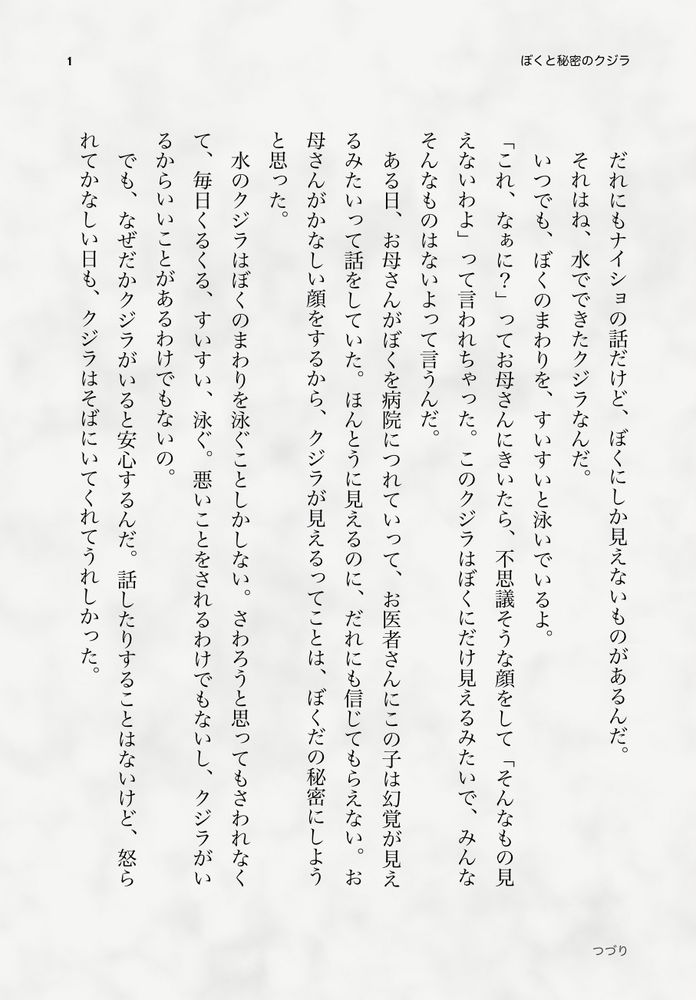 ぼくと秘密のクジラ
1
だれにもナイショの話だけど、ぼくにしか見えないものがあるんだ。
それはね、水でできたクジラなんだ。
いつでも、ぼくのまわりを、すいすいと泳いでいるよ。
「これ、なぁに？」ってお母さんにきいたら、不思議そうな顔をして「そんなもの見
えないわよ」って言われちゃった。このクジラはぼくにだけ見えるみたいで、みんな
そんなものはないよって言うんだ。
ある日、お母さんがぼくを病院につれていって、お医者さんにこの子は幻覚が見え
るみたいって話をしていた。ほんとうに見えるのに、だれにも信じてもらえない。お
母さんがかなしい顔をするから、クジラが見えるってことは、ぼくだの秘密にしよう
と思った。
水のクジラはぼくのまわりを泳ぐことしかしない。さわろうと思ってもさわれなく
て、毎日くるくる、すいすい、泳ぐ。悪いことをされるわけでもないし、クジラがい
るからいいことがあるわけでもないの。
でも、なぜだかクジラがいると安心するんだ。話したりすることはないけど、怒ら
れてかなしい日も、クジラはそばにいてくれてうれしかった。
つづり